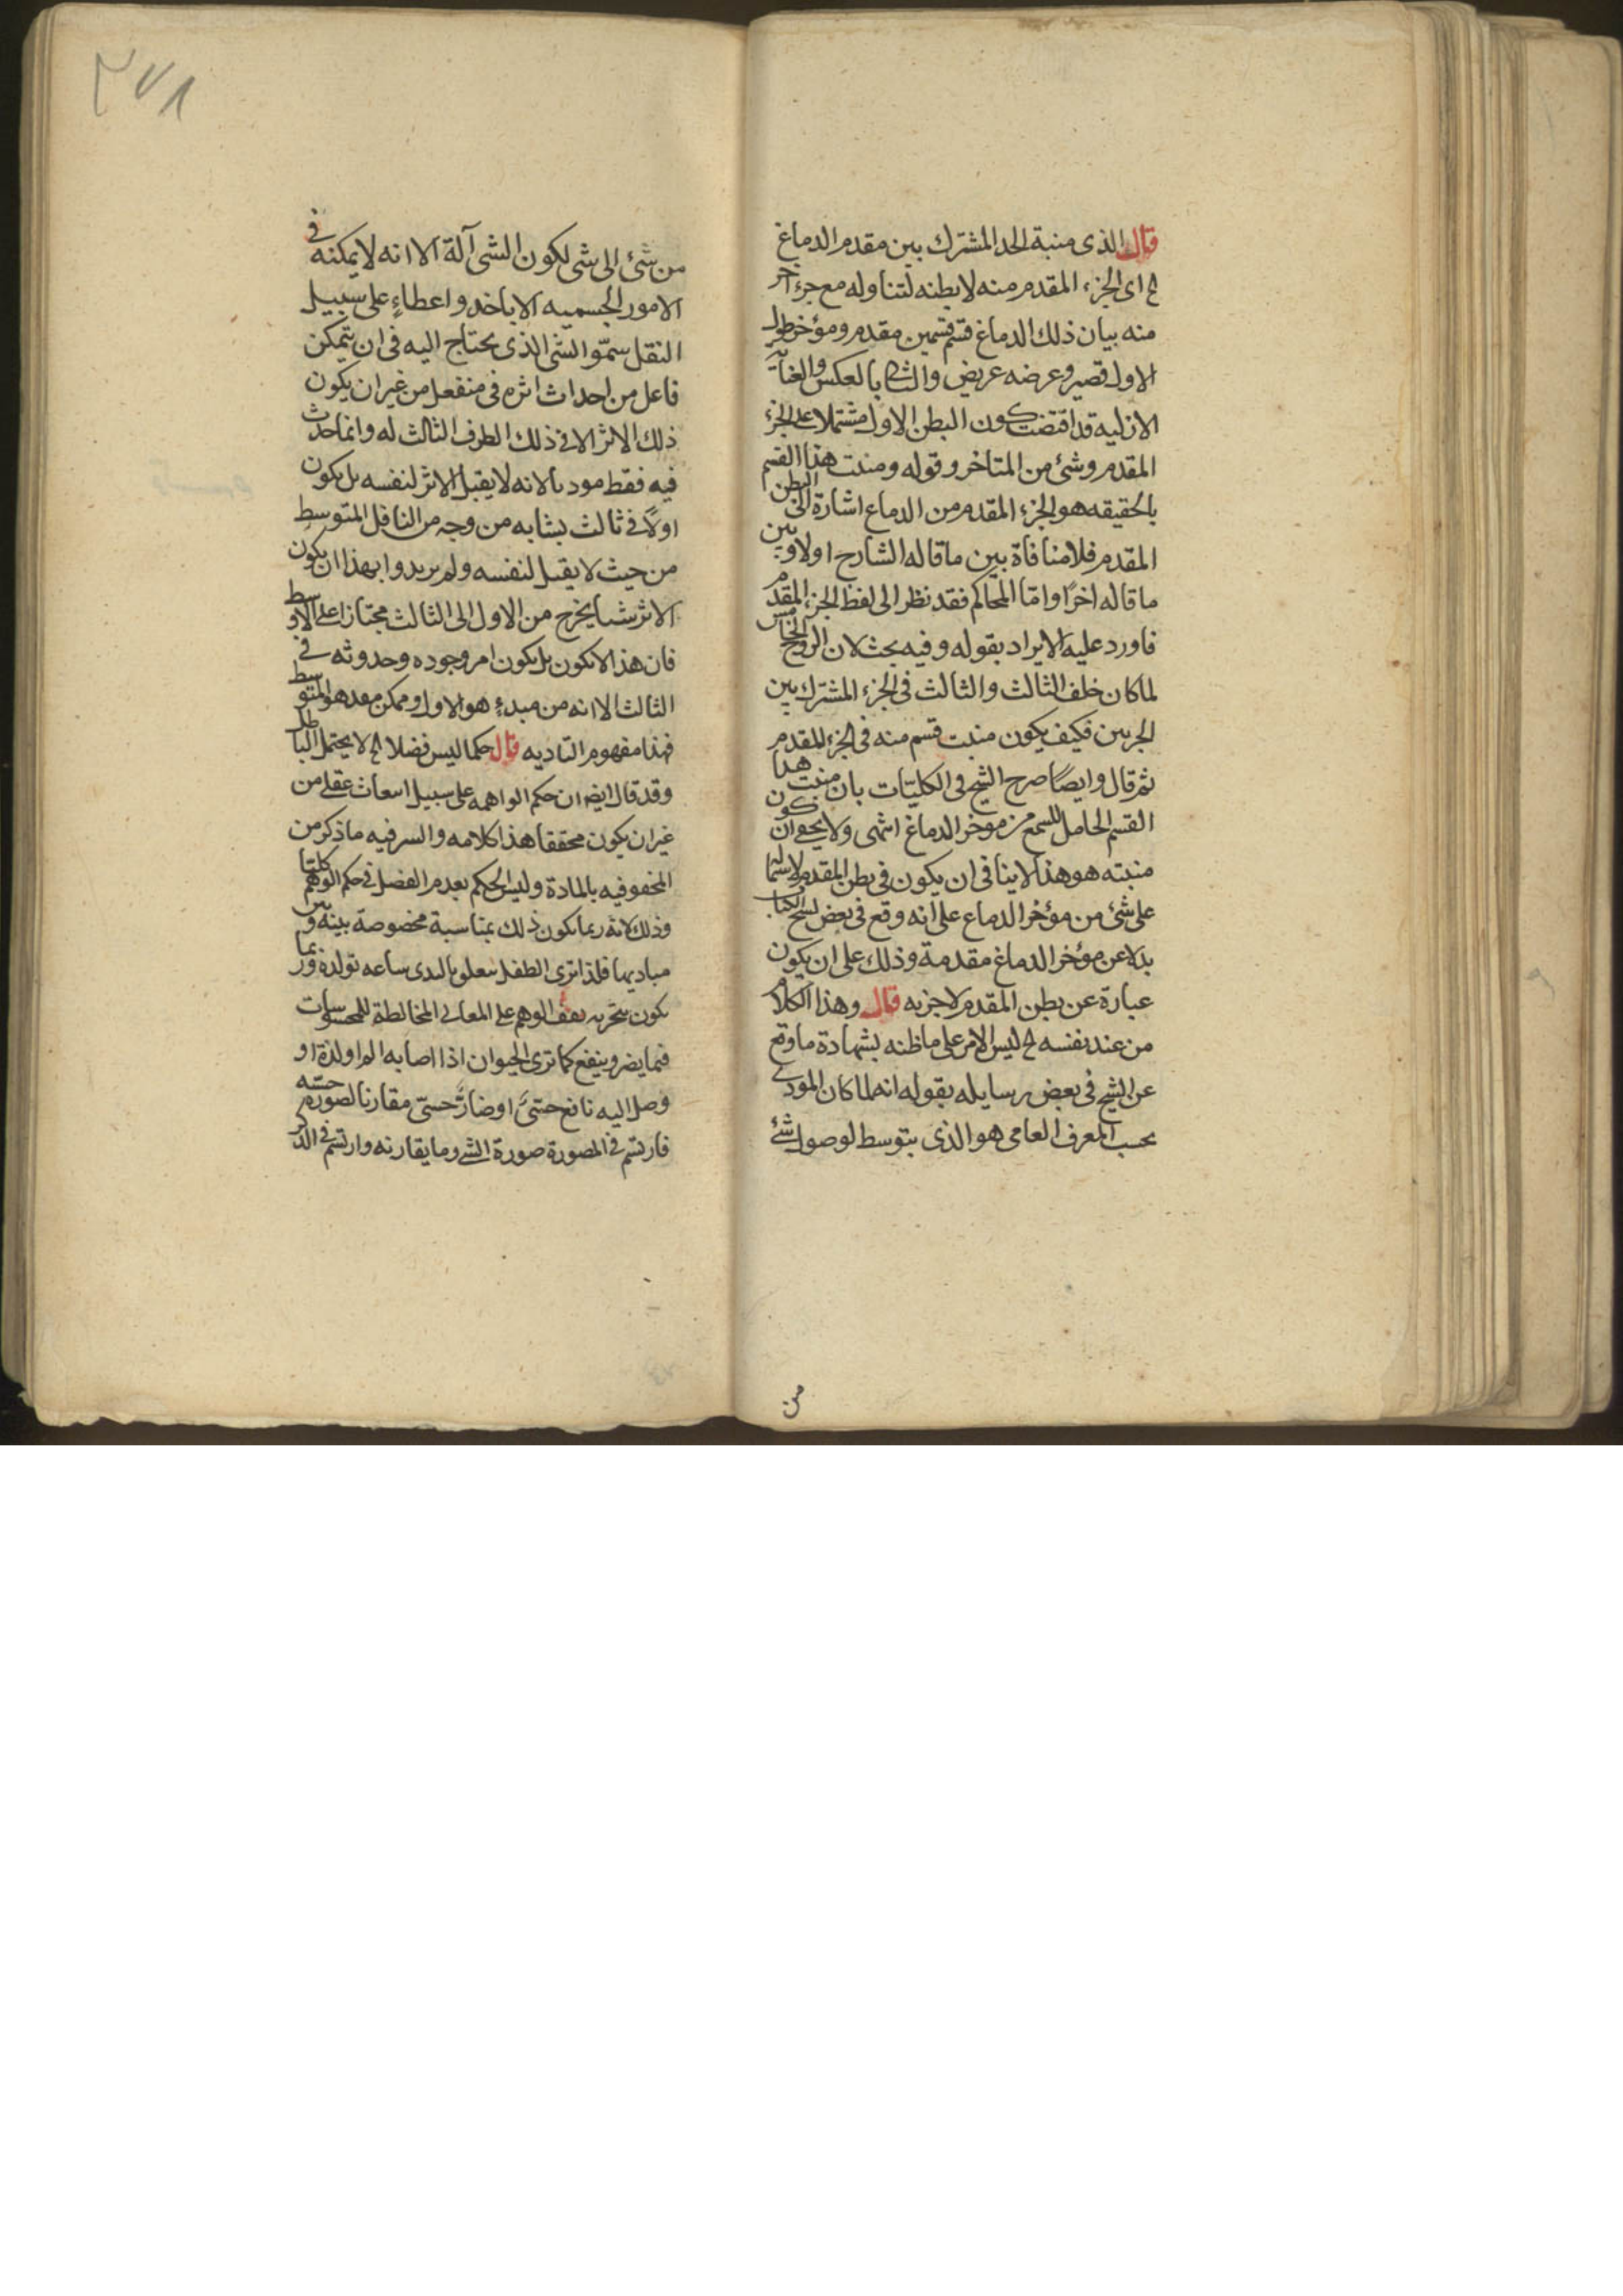 قال الذى منبة الحد المشترك بين مقدم الدماغ
ح اى الجزء المقدم منه لا بطنه لتناوله مع جزء اخر
منه بيان ذلك الدماغ قسم قسمين مقدم ومؤخر طول
الاول قصير وعرضه عريض والثانى بالعكس والعناية
الازلية قد اقتضت كون البطن الاول مشتملا على الجزء
المقدم وشئ من المتاخر وقوله ومنبت هذا القسم
بالحقيقه هو الجزء المقدم من الدماغ اشارة الى البطن
المقدم فلا منافاة بين ما قاله الشارح اولا وبين
ما قاله اخرًا واما المحاكم فقد نظر الى لفظ الجزء المقدم
فاورد عليه الايراد بقوله وفيه بحث لان الزوج الخامس
لما كان خلف الثالث والثالث فى الجزء المشترك بين
الجزئين فكيف يكون منبت قسم منه فى الجزء المقدم
ثم قال وايضًا صرح الشيخ فى الكليّات بان منبت هذا
القسم الحامل للسمع من موخر الدماغ انتهى ولا يخفى ان كون
منبته هو هذا لا ينافى ان يكون فى بطن المقدم لاشتماله
على شئ من مؤخر الدماغ على انه وقع فى بعض نسخ الكتاب
بدلا عن مؤخر الدماغ مقدمة وذلك على ان يكون
عبارة عن بطن المقدم لا جزءه قال وهذا الكلام
من عند نفسه ح ليس الامر على ما ظنه بشهادة ما وقع
عن الشيخ فى بعض رسايله بقوله انه لما كان المودى
بحسب المعرف العامى هو الذى يتوسط لوصول شئ
من
من شئ الى شى لكون الشى آلة الا انه لا يمكنه فى
الامور الجسميه الا باخذ واعطاءٍ على سبيل
النقل سمّو الشئ الذى يحتاج اليه فى ان يتمكن
فاعل من احداث اثره فى منفعل من غير ان يكون
ذلك الاثر الا فى ذلك الطرف الثالث له وانما حدث
فيه فقط موديا لانه لا يقبل الاثر لنفسه بل يكون
اولًا فى ثالث يشابه من وجه من الناقل المتوسط
من حيث لا يقبل لنفسه ولم يريدوا بهذا ان يكون
الاثر شيا يخرج من الاول الى الثالث مجتازا على الاوسط
فان هذا لا يكون بل يكون امر وجوده وحدوثه فى
الثالث الا انه من مبدءٍ هو الاول وممكن معد هو المتوسط
فهذا مفهوم التاديه قال حكما ليس فضلا ح لا يحتمل الباطل
وقد قال ايضا ان حكم الواهمه على سبيل انبعاث عقلى من
غير ان يكون محققا هذا كلامه والسر فيه ما ذكر من
المحفوفيه بالمادة وليس الحكم بعدم الفصل فى حكم الوهم كليا
وذلك لانه ربما يكون ذلك بمناسبة مخصوصة بينه وبين
مباديها فلذا ترى الطفل يتعلق بالثدى ساعه تولده وربما
يكون بتجربه يقف الوهم على المعانى المخالطة للمحسوسات
فيما يضر وينفع كما ترى الحيوان اذا اصابه الم او لذة او
وصل اليه نافع حسىّ او ضارّ حسىّ مقارنا لصورة حسيه
فارتسم فى المصورة صورة الشى وما يقارنه وارتسم فى الذكر
٣٧٨